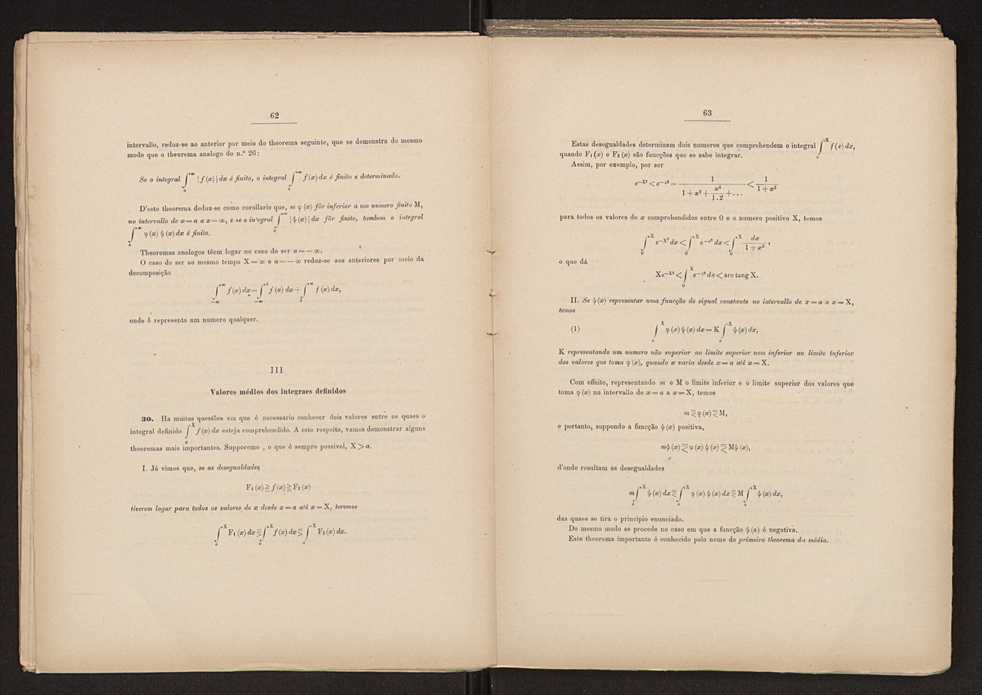 62
intervallo, reduz-se ao anterior por meio do theorema seguinte, que se demonstra do mesmo
modo que o theorema analogo do n.º 26:
Se o integral ∫_a^∞ |f(x)| dx é finito, o integral ∫_a^∞ f(x) dx é finito e determinado.
D'este theorema deduz-se como corollario que, se φ(x) fôr inferior a um numero finito M,
no intervallo de x = a a x = ∞, e se o integral ∫_a^∞ |ψ(x)| dx fôr finito, tambem o integral
∫_a^∞ φ(x) ψ(x) dx é finito.
Theoremas analogos têem logar no caso de ser a = − ∞.
O caso de ser ao mesmo tempo X = ∞ e a = − ∞ reduz-se aos anteriores por meio da
decomposição
∫_{−∞}^{∞} f(x) dx = ∫_{−∞}^b f(x) dx + ∫_b^∞ f(x) dx,
onde b representa um numero qualquer.
III
Valores médios dos integraes definidos
30. Ha muitas questões em que é necessario conhecer dois valores entre os quaes o
integral definido ∫_a^X f(x) dx esteja comprehendido. A este respeito, vamos demonstrar alguns
theoremas mais importantes. Supporemo , o que é sempre possivel, X > a.
I. Já vimos que, se as desegualdades
F₁(x) ≧ f(x) ≧ F₂(x)
tiverem logar para todos os valores de x desde x = a até x = X, teremos
∫_a^X F₁(x) dx ≧ ∫_a^X f(x) dx ≧ ∫_a^X F₂(x) dx.
63
Estas desegualdades determinam dois numeros que comprehendem o integral ∫_a^X f(x) dx,
quando F₁(x) e F₂(x) são funcções que se sabe integrar.
Assim, por exemplo, por ser
e^{−X²} < e^{−x²} = 1/(1 + x² + x⁴/1.2 + ...) < 1/(1 + x²)
para todos os valores de x comprehendidos entre 0 e o numero positivo X, temos
∫_0^X e^{−X²} dx < ∫_0^X e^{−x²} dx < ∫_0^X dx/(1 + x²),
o que dá
Xe^{−X²} < ∫_0^X e^{−x²} dx < arc tang X.
II. Se ψ(x) representar uma funcção de signal constante no intervallo de x = a a x = X,
temos
(1) ∫_a^X φ(x) ψ(x) dx = K ∫_a^X ψ(x) dx,
K representando um numero não superior ao limite superior nem inferior ao limite inferior
dos valores que toma φ(x), quando x varia desde x = a até x = X.
Com effeito, representando m e M o limite inferior e o limite superior dos valores que
toma φ(x) no intervallo de x = a a x = X, temos
m ≦ φ(x) ≦ M,
e portanto, suppondo a funcção ψ(x) positiva,
mψ(x) ≦ φ(x) ψ(x) ≦ Mψ(x),
d'onde resultam as desegualdades
m ∫_a^X ψ(x) dx ≦ ∫_a^X φ(x) ψ(x) dx ≦ M ∫_a^X ψ(x) dx,
das quaes se tira o principio enunciado.
Do mesmo modo se procede no caso em que a funcção ψ(x) é negativa.
Este theorema importante é conhecido pelo nome de primeiro theorema da média.